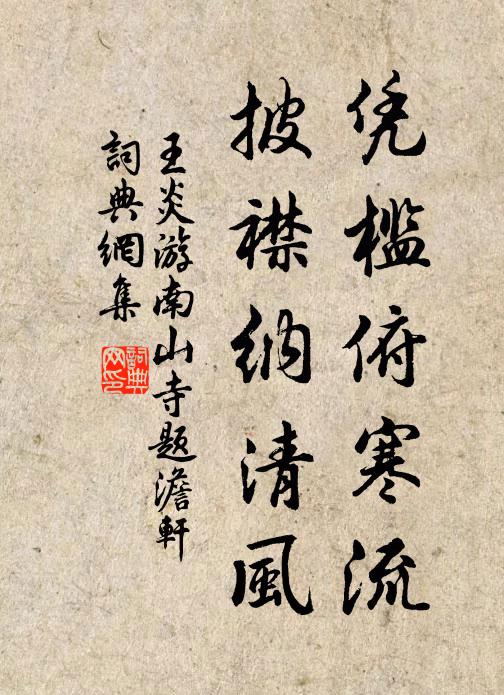 凭檻俯寒流
披襟納清風
王炎游南山寺题澹軒
詞典網集
詞典網印